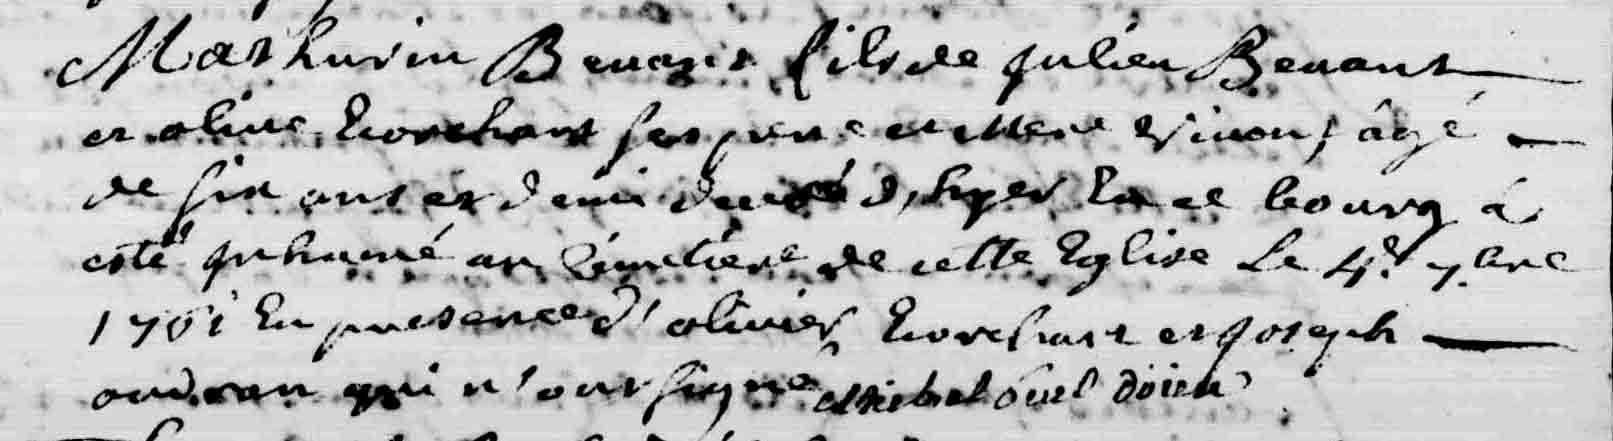 Mathurin Benart fils de julien Benart
et olive Corchart ses pere et mere vivons, âgé
de six ans et demi decedé d, hyer En ce bourg à
esté jnhumé au Cémetiere de cette Eglise Le 4e 7.bre
1701 En presence d'olivier Corchart et joseph
audran qui n'ont signe Michel doien